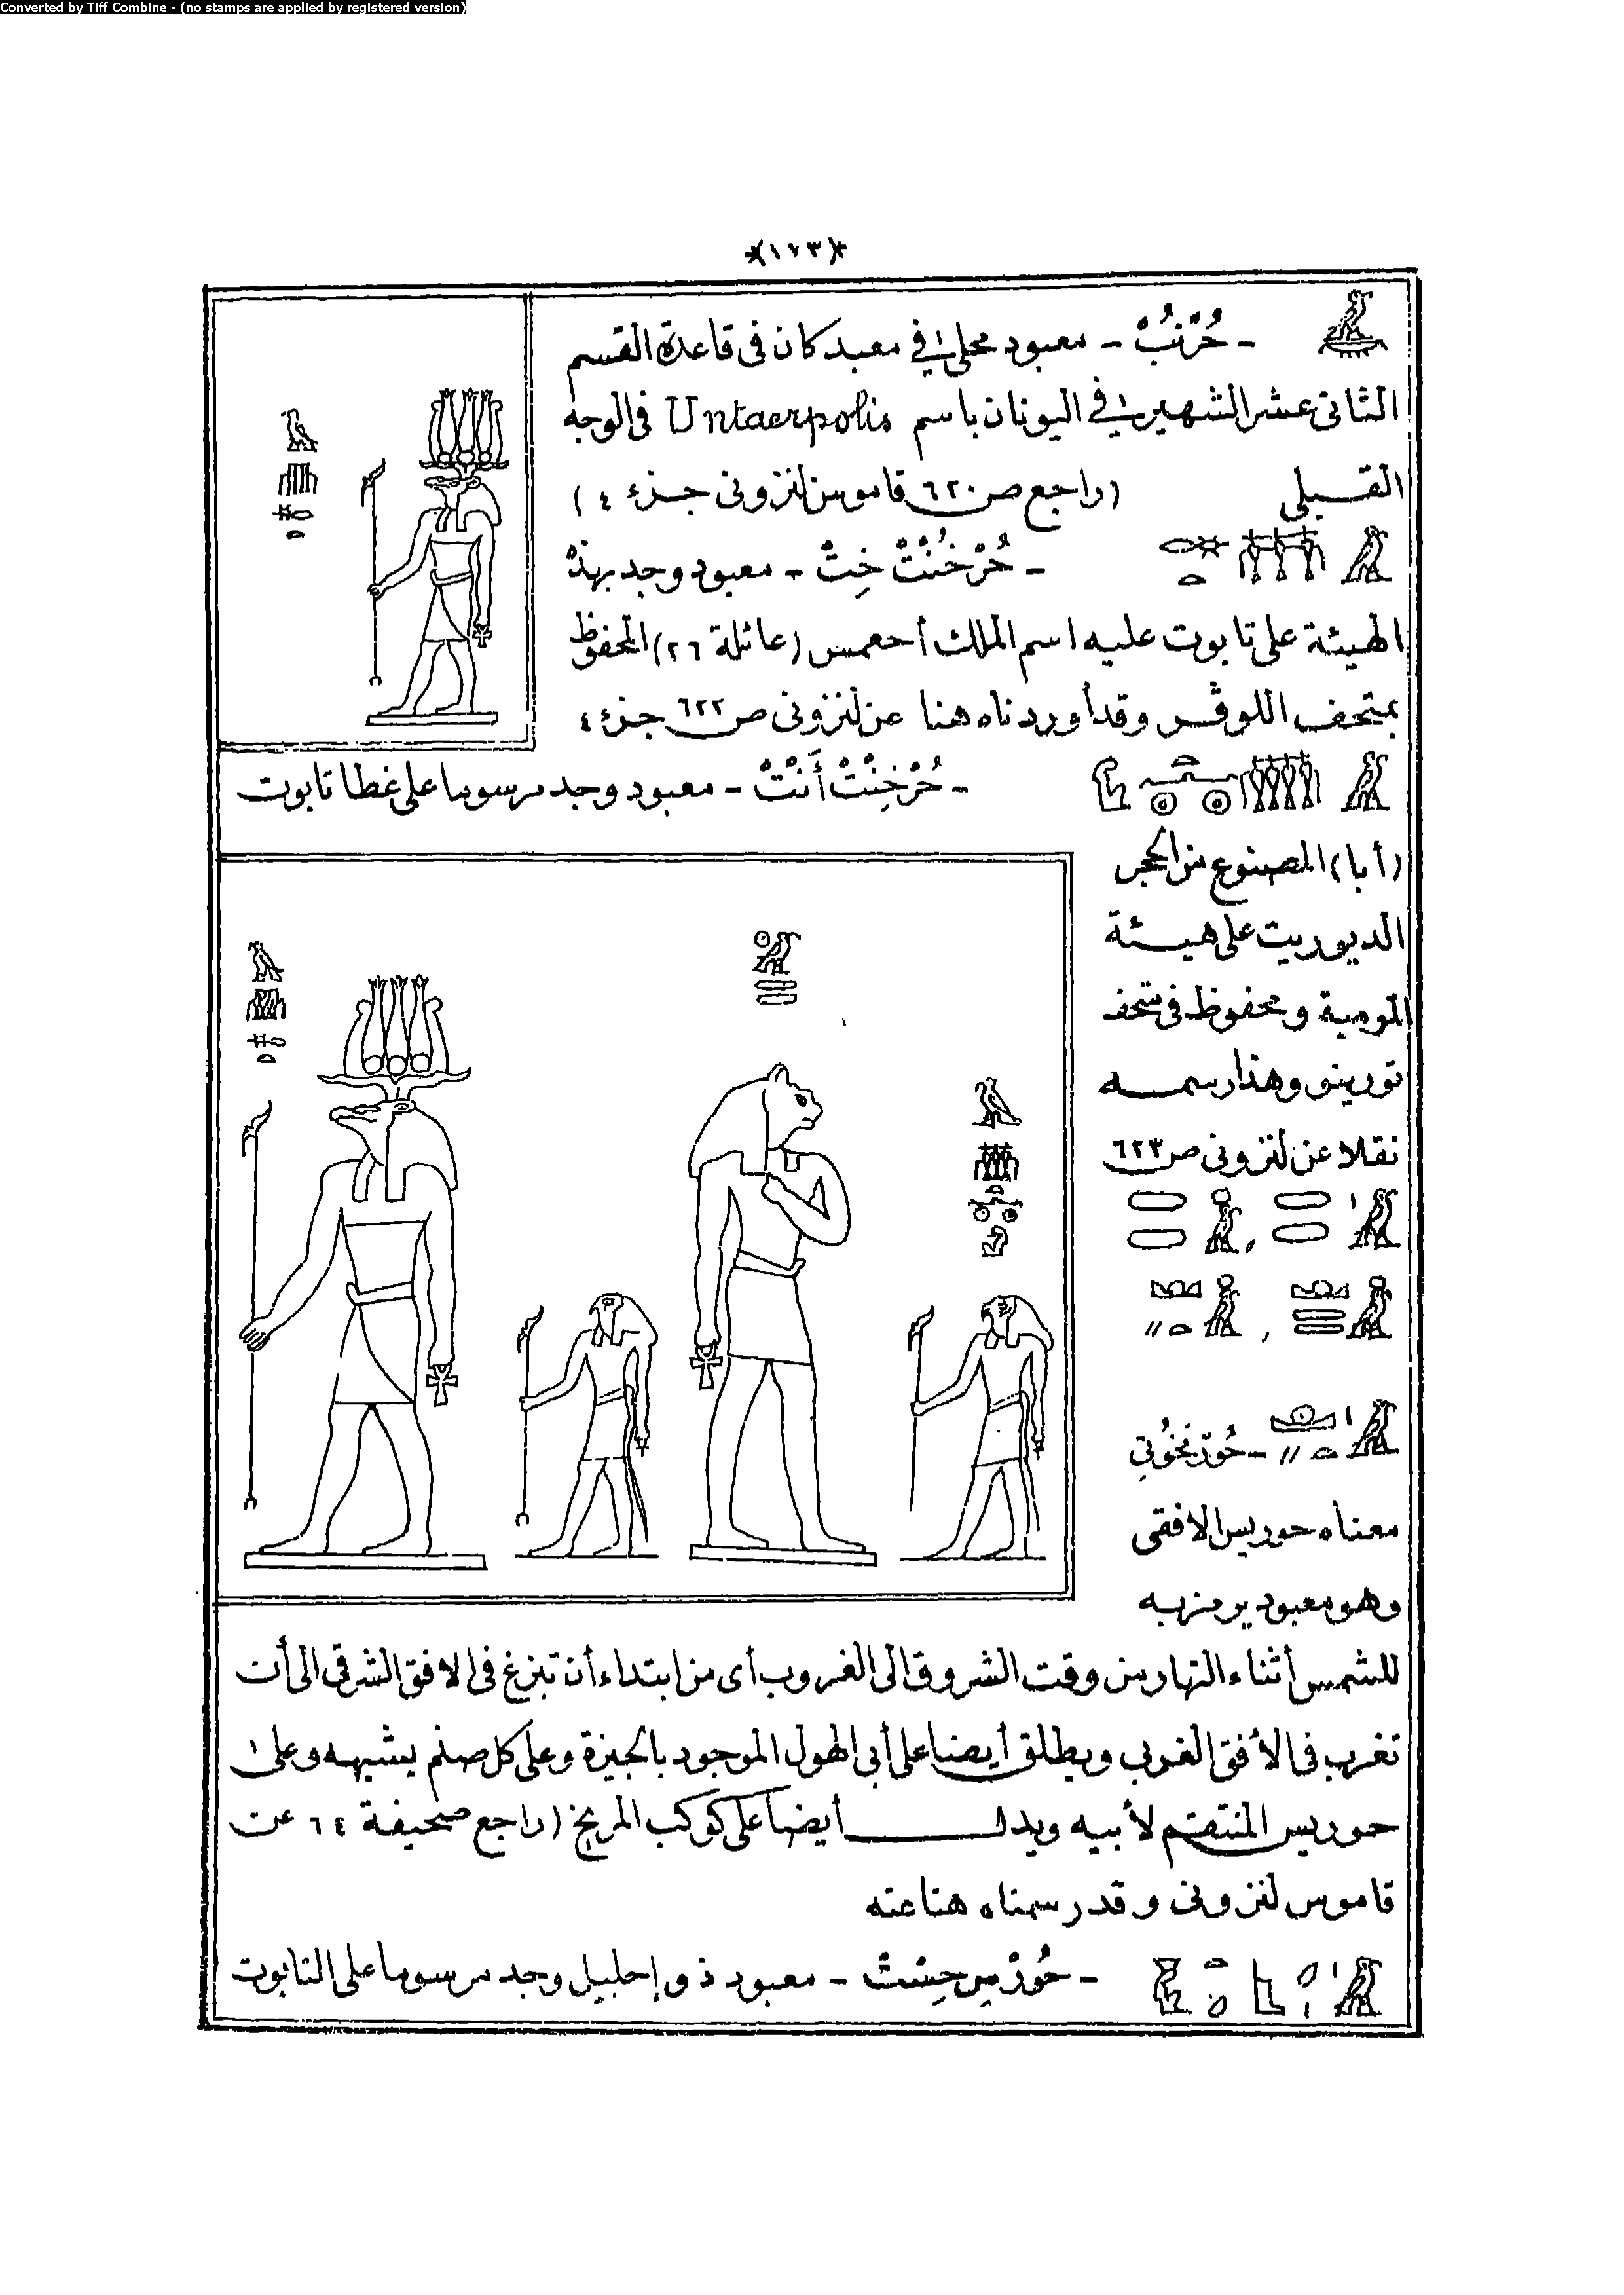 Converted by Tiff Combine - (no stamps are applied by registered version)
*(١٢٣)*
- حُرْنُبْ - معبود محلى في معبد كان فى قاعدة القسم
الثانى عشر الشهير في اليونان باسم Untaerpolis فى الوجه
القبلى (راجع ص ٦٢٠ قاموس لنزونى جزء ٤)
- حُرْخُنْتْ خِتْ - معبود وجد بهذه
الهيئة على تابوت عليه اسم الملك أحعمس (عائلة ٢٦) المحفوظ
بمتحف اللوڤر وقد أوردناه هنا عن لنزونى ص ٦٢٢ جزء ٤
- حُرْخِنْتْ أَنْتْ - معبود وجد مرسوما على غطا تابوت
(أبا) المصنوع من الحجر
الديوريت على هيئة
المومية ومحفوظ فى متحف
تورينو وهذا رسمه
نقلا عن لنزونى ص ٦٢٣
- حُورْنَخُوتِى
معناه حوريس الافقى
وهو معبود يرمز به
للشمس أثناء النهار من وقت الشروق الى الغروب أى من ابتداء أن تبزغ فى الافق الشرقى الى أن
تغرب فى الأفق الغربى ويطلق أيضا على أبى الهول الموجود بالجيزة وعلى كل صنم يشبهه وعلى
حوريس المنتقم لأبيه ويدل أيضا على كوكب المريخ (راجع صحيفة ٦٤ عن
قاموس لنزونى وقد رسمناه هنا عنه
- حُورْمِسِ حِسْتْ - معبود ذو إحليل وجد مرسوما على التابوت